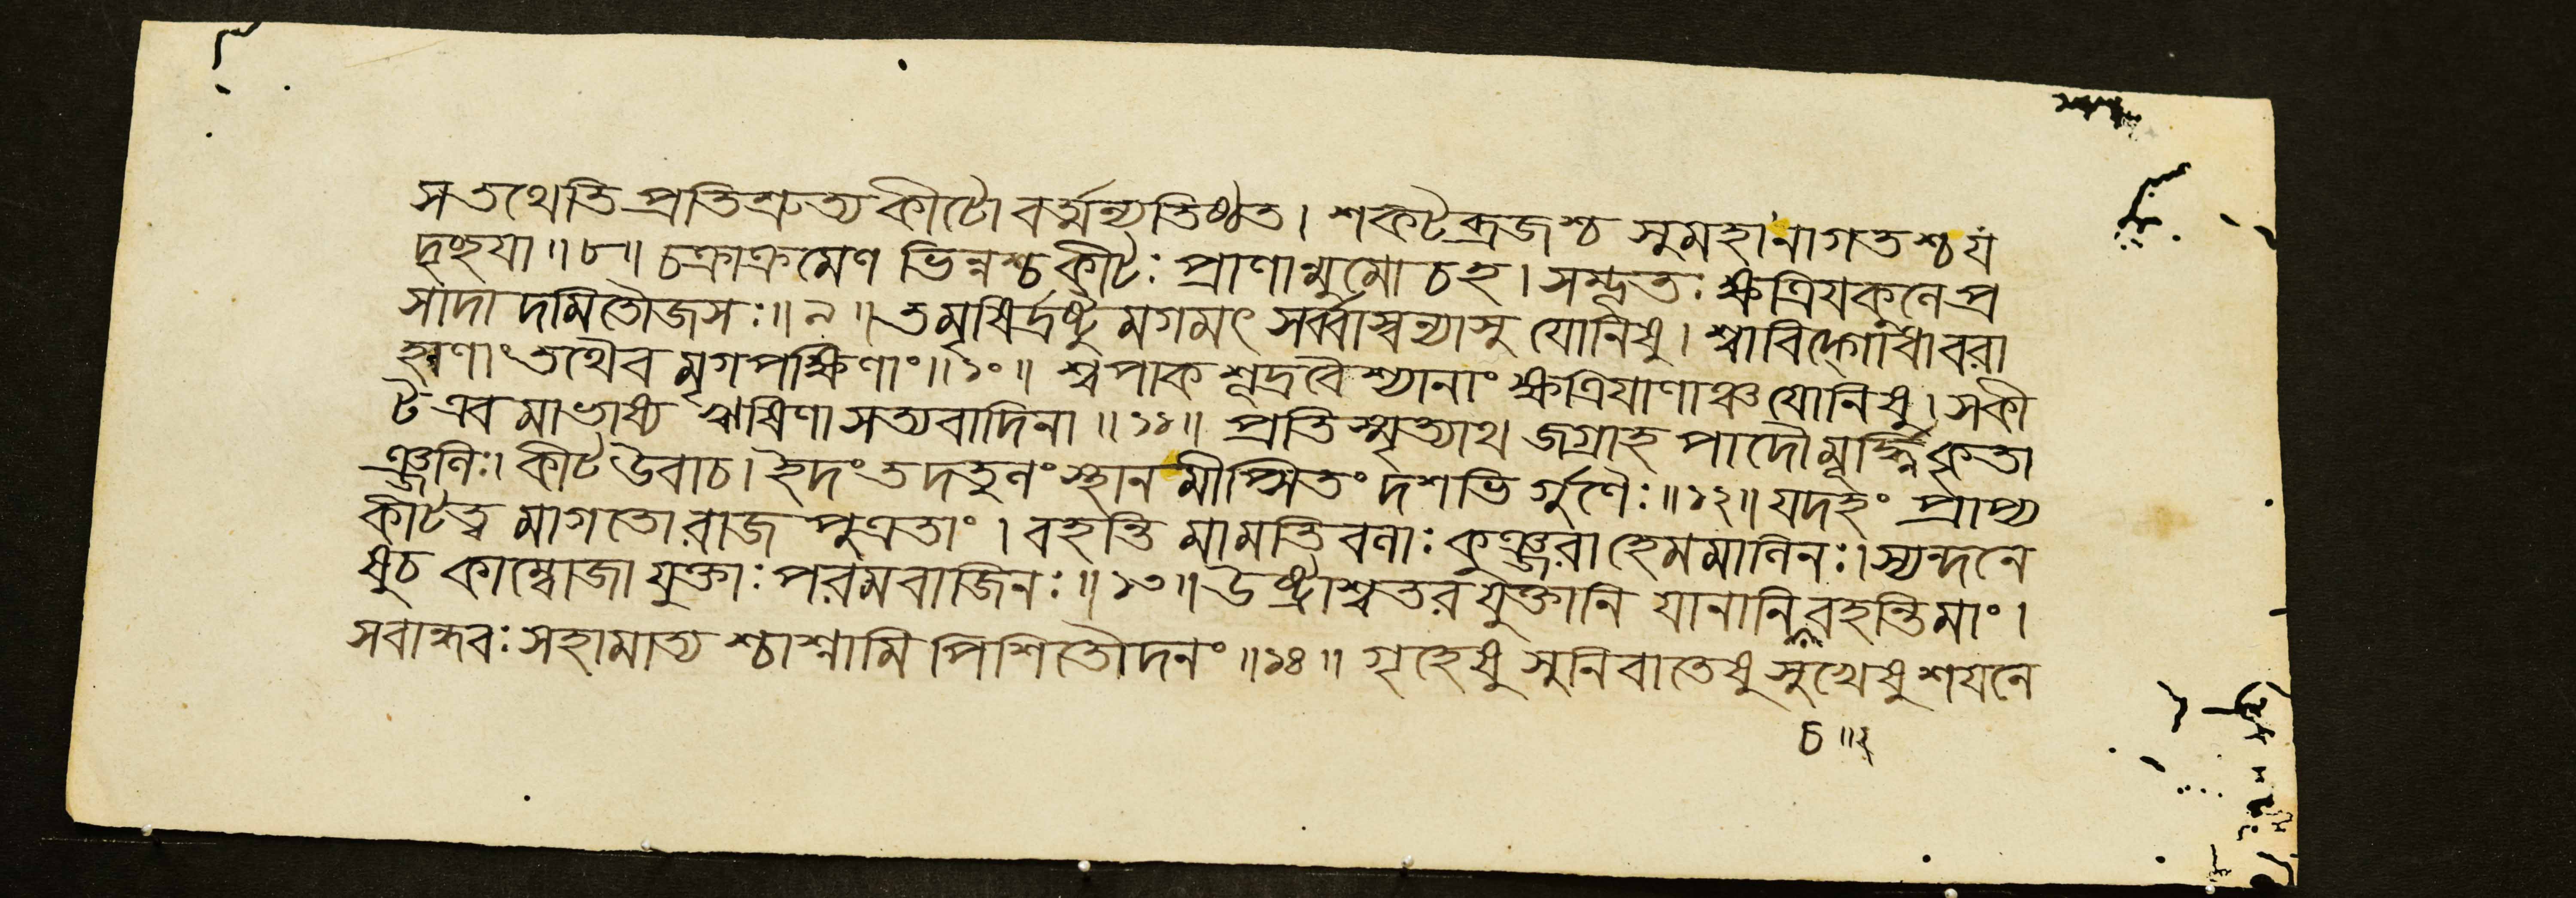 স তথেতি প্রতিশ্রুত্য কীটো বর্ত্মন্যতিষ্ঠত । শকটব্রজশ্চ সুমহানাগতশ্চ য
দৃচ্ছয়া ॥ ৮ ॥ চক্রাক্রমেণ ভিন্নশ্চ কীটঃ প্রাণান্মুমোচ হ । সম্ভূতঃ ক্ষত্রিয়কুলে প্র
সাদাদমিতৌজসঃ ॥ ৯ ॥ তমৃষির্দ্রষ্টুমগমৎ সর্ব্বাস্বন্যাসু যোনিষু । শ্বাবিদ্গোধাবরা
হাণাং তথৈব মৃগপক্ষিণাং ॥ ১০ ॥ শ্বপাকশূদ্রবৈশ্যানাং ক্ষত্রিয়াণাঞ্চ যোনিষু । স কী
ট এবমাভাষ্য ঋষিণা সত্যবাদিনা ॥ ১১ ॥ প্রতিস্মৃত্যাথ জগ্রাহ পাদৌ মূর্দ্ধ্নি কৃতা
ঞ্জলিঃ । কীট উবাচ । ইদং তদতুলং স্থানমীপ্সিতং দশভির্গুণৈঃ ॥ ১২ ॥ যদহং প্রাপ্য
কীটত্বমাগতো রাজপুত্রতাং । বহন্তি মামতিবলাঃ কুঞ্জরা হেমমালিনঃ । স্যন্দনে
ষু চ কাম্বোজা যুক্তাঃ পরমবাজিনঃ ॥ ১৩ ॥ উষ্ট্রাশ্বতরযুক্তানি যানানি বহন্তি মাং ।
সবান্ধবঃ সহামাত্যশ্চাশ্নামি পিশিতৌদনং ॥ ১৪ ॥ গৃহেষু সুনিবাতেষু সুখেষু শয়নে
চ ॥ ২